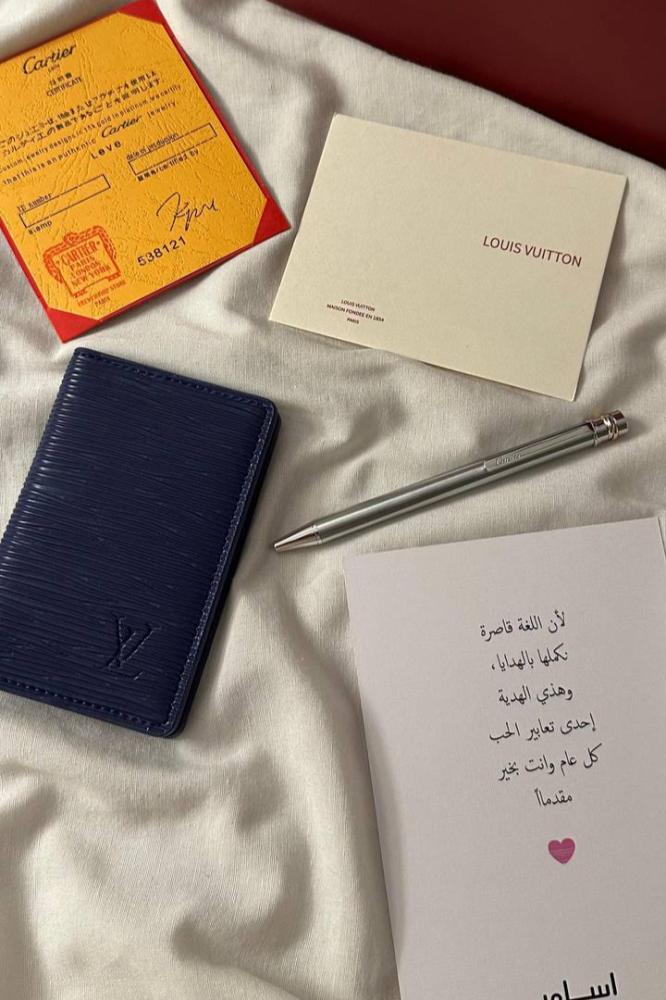 Cartier
CERTIFICATE
That this is an authentic Cartier jewelry.
Love
date of production
ID number
stamp
538121
CARTIER
PARIS
LONDON
NEW YORK
PARIS
LOUIS VUITTON
LOUIS VUITTON
MAISON FONDÉE EN 1854
PARIS
Cartier
LV
لأن اللغة قاصرة
نكملها بالهدايا،
وهذي الهدية
إحدى تعابير الحب
كل عام وانت بخير
مقدماً